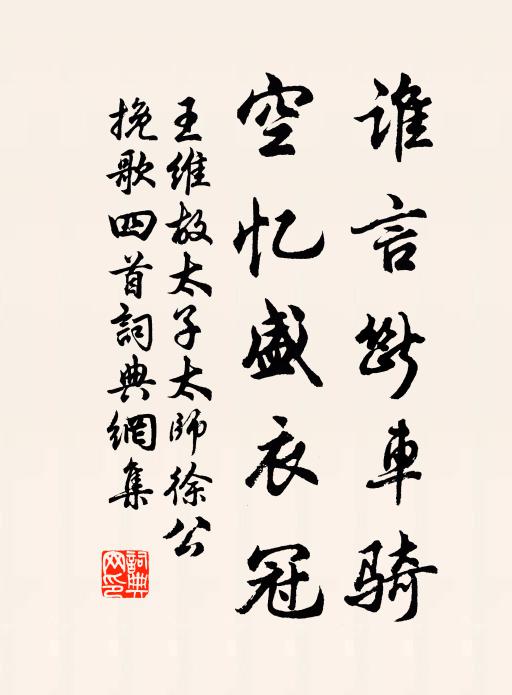 谁言断車骑
空忆盛衣冠
王维故太子太师徐公
挽歌四首詞典網集
詞典網印